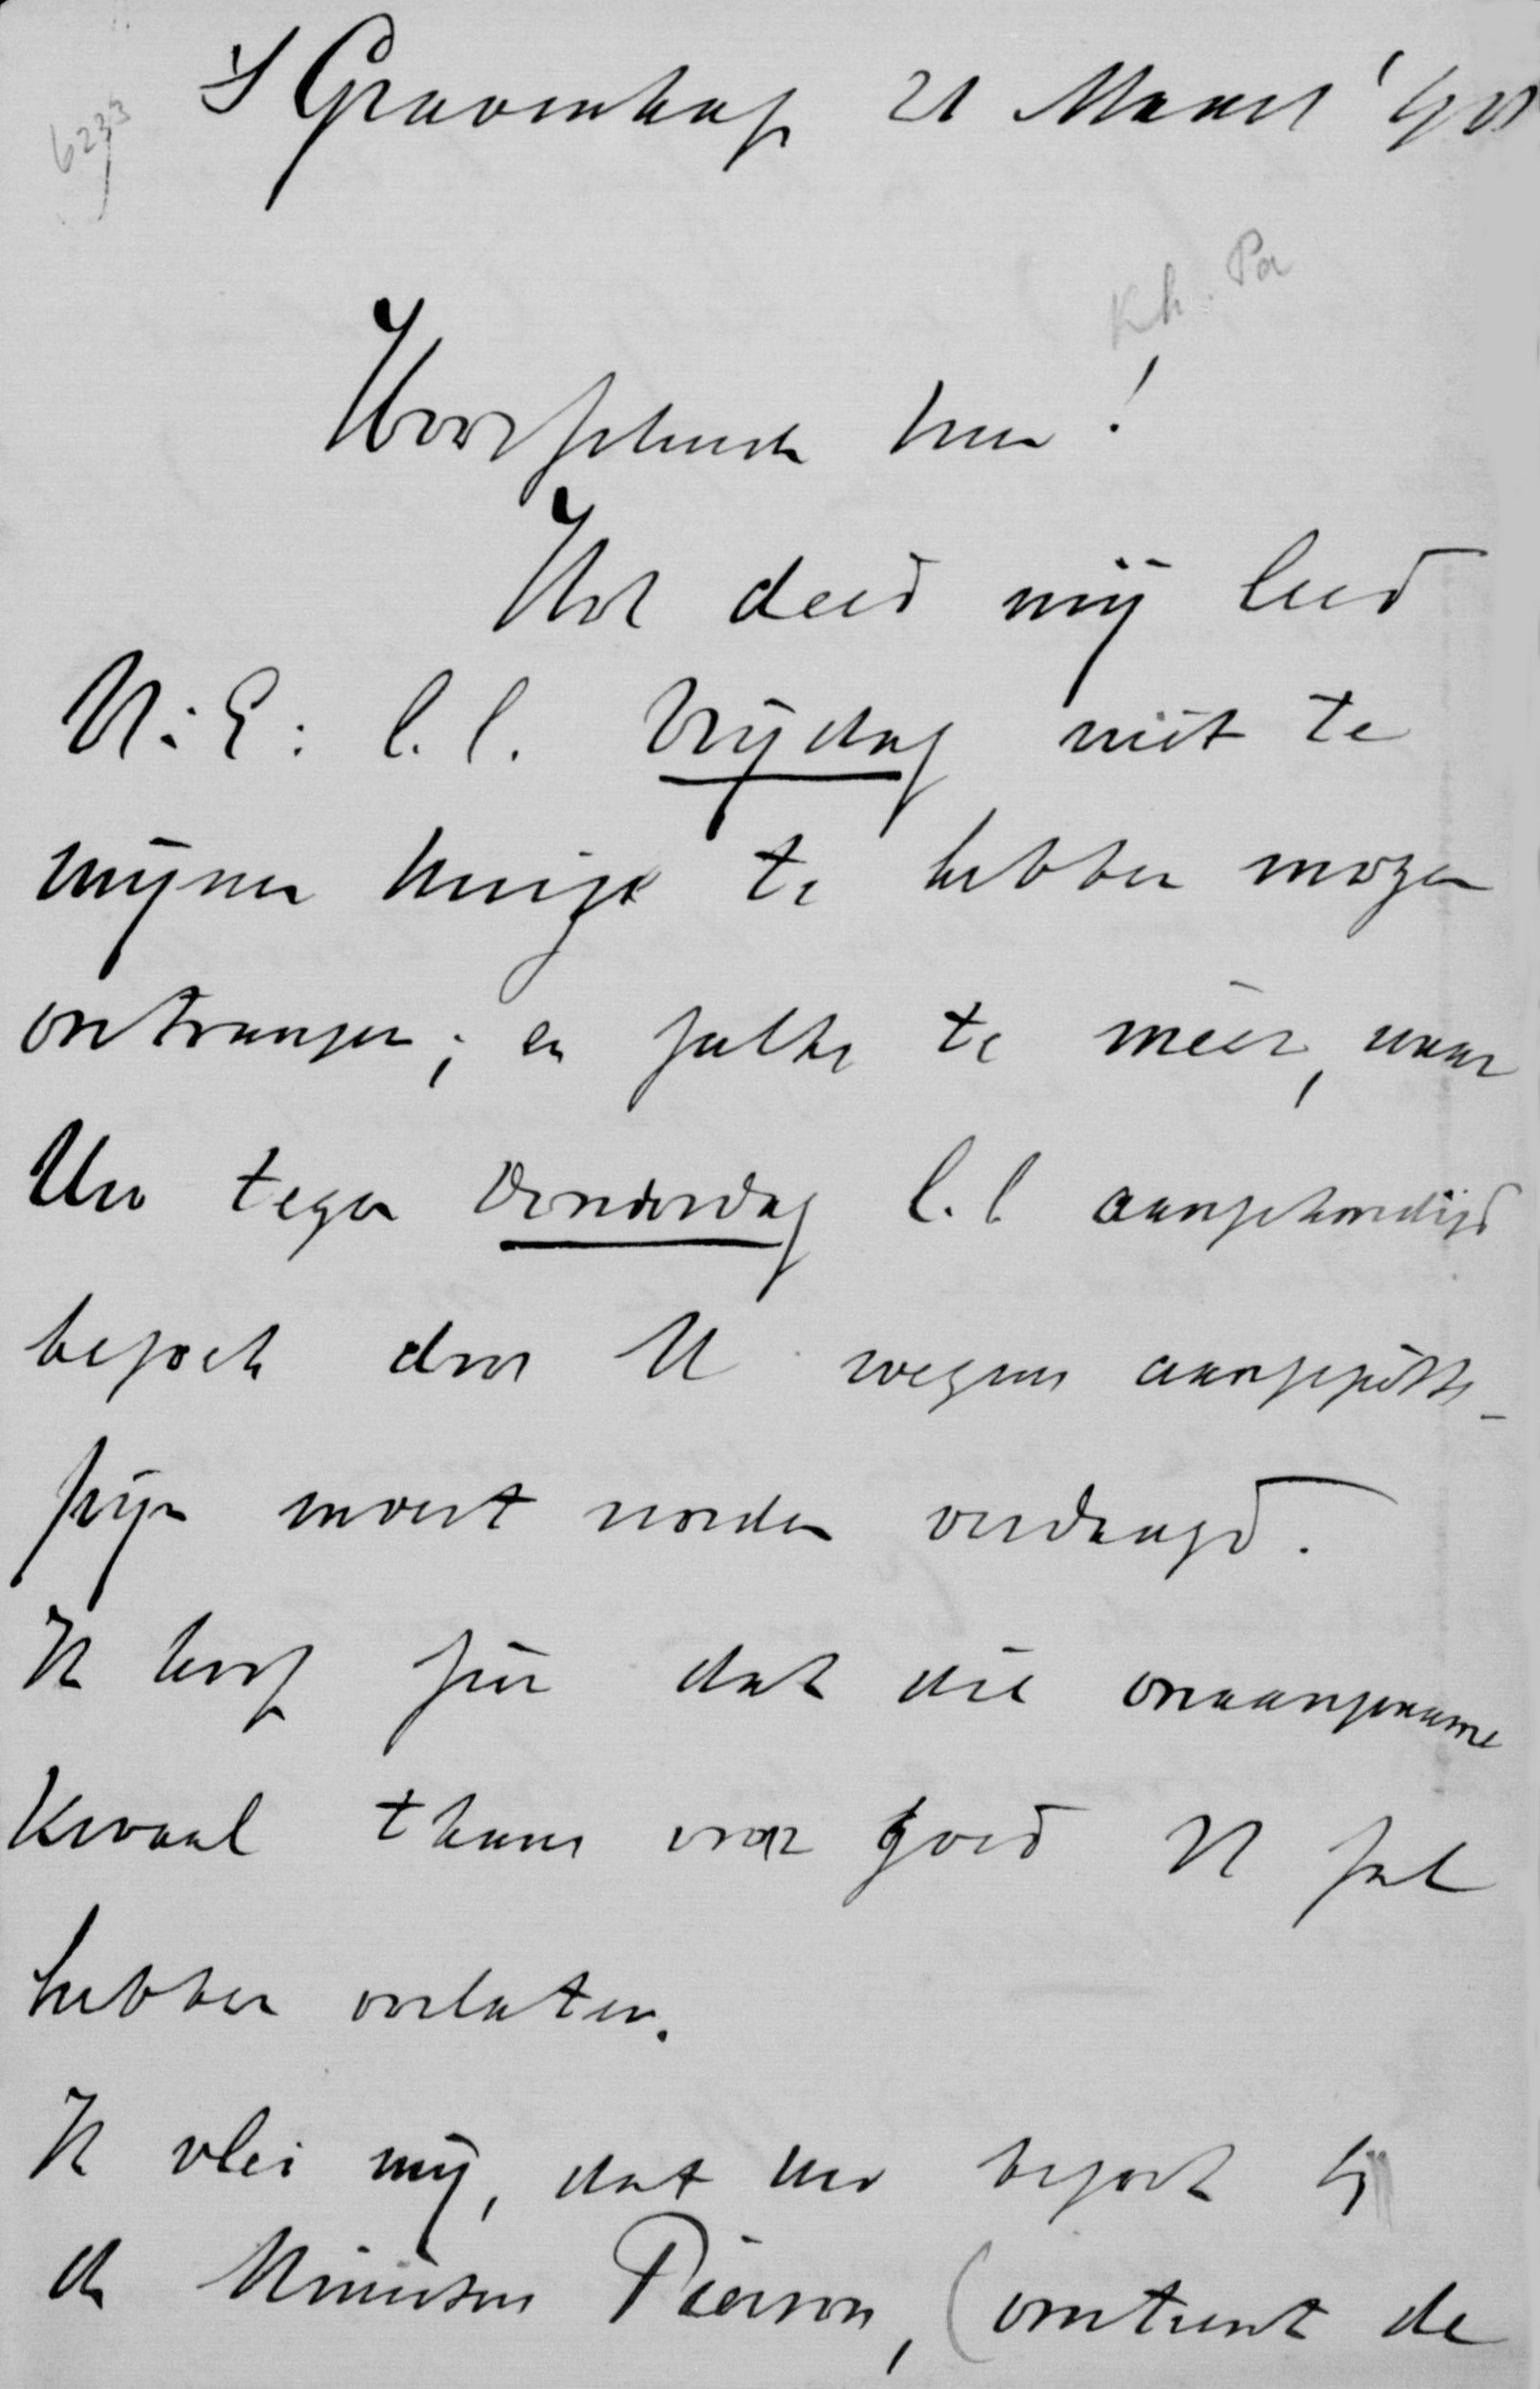 6233
's Gravenhage 21 Maart '98
Kh. Pa
Hooggeleerde heer!
Het deed mij leed
U.E: l.l. Vrijdag niet te
mijnen huize te hebben mogen
ontvangen; en zulks te méér, waar
Uw tegen Donderdag l.l aangekondigd
bezoek door U wegens aangezichts-
pijn moest worden verdaagd.
Ik hoop zeer dat die onaangename
kwaal thans voor goed U zal
hebben verlaten.
Ik vlei mij, dat uw bezoek bij
de Minister Pierson, (omtrent de